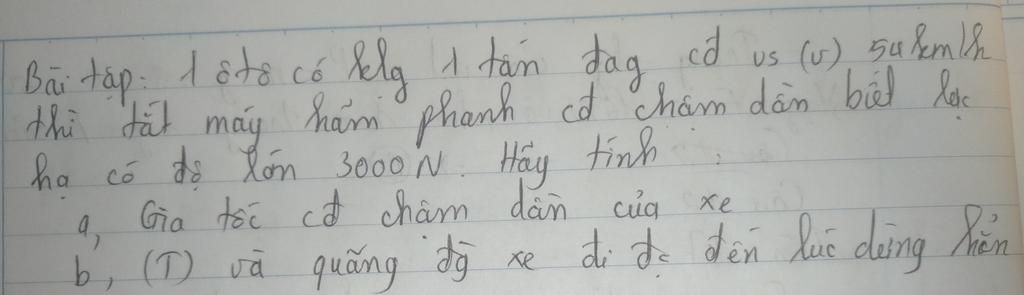 Bài tập: 1 ôtô có klg 1 tấn đag cđ vs (v) 54km/h
thì tắt máy hãm phanh cđ chậm dần biết lực
hạ có độ lớn 3000N. Hãy tính:
a, Gia tốc cđ chậm dần của xe
b, (T) và quãng đg xe đi đc đến lúc dừng hẳn